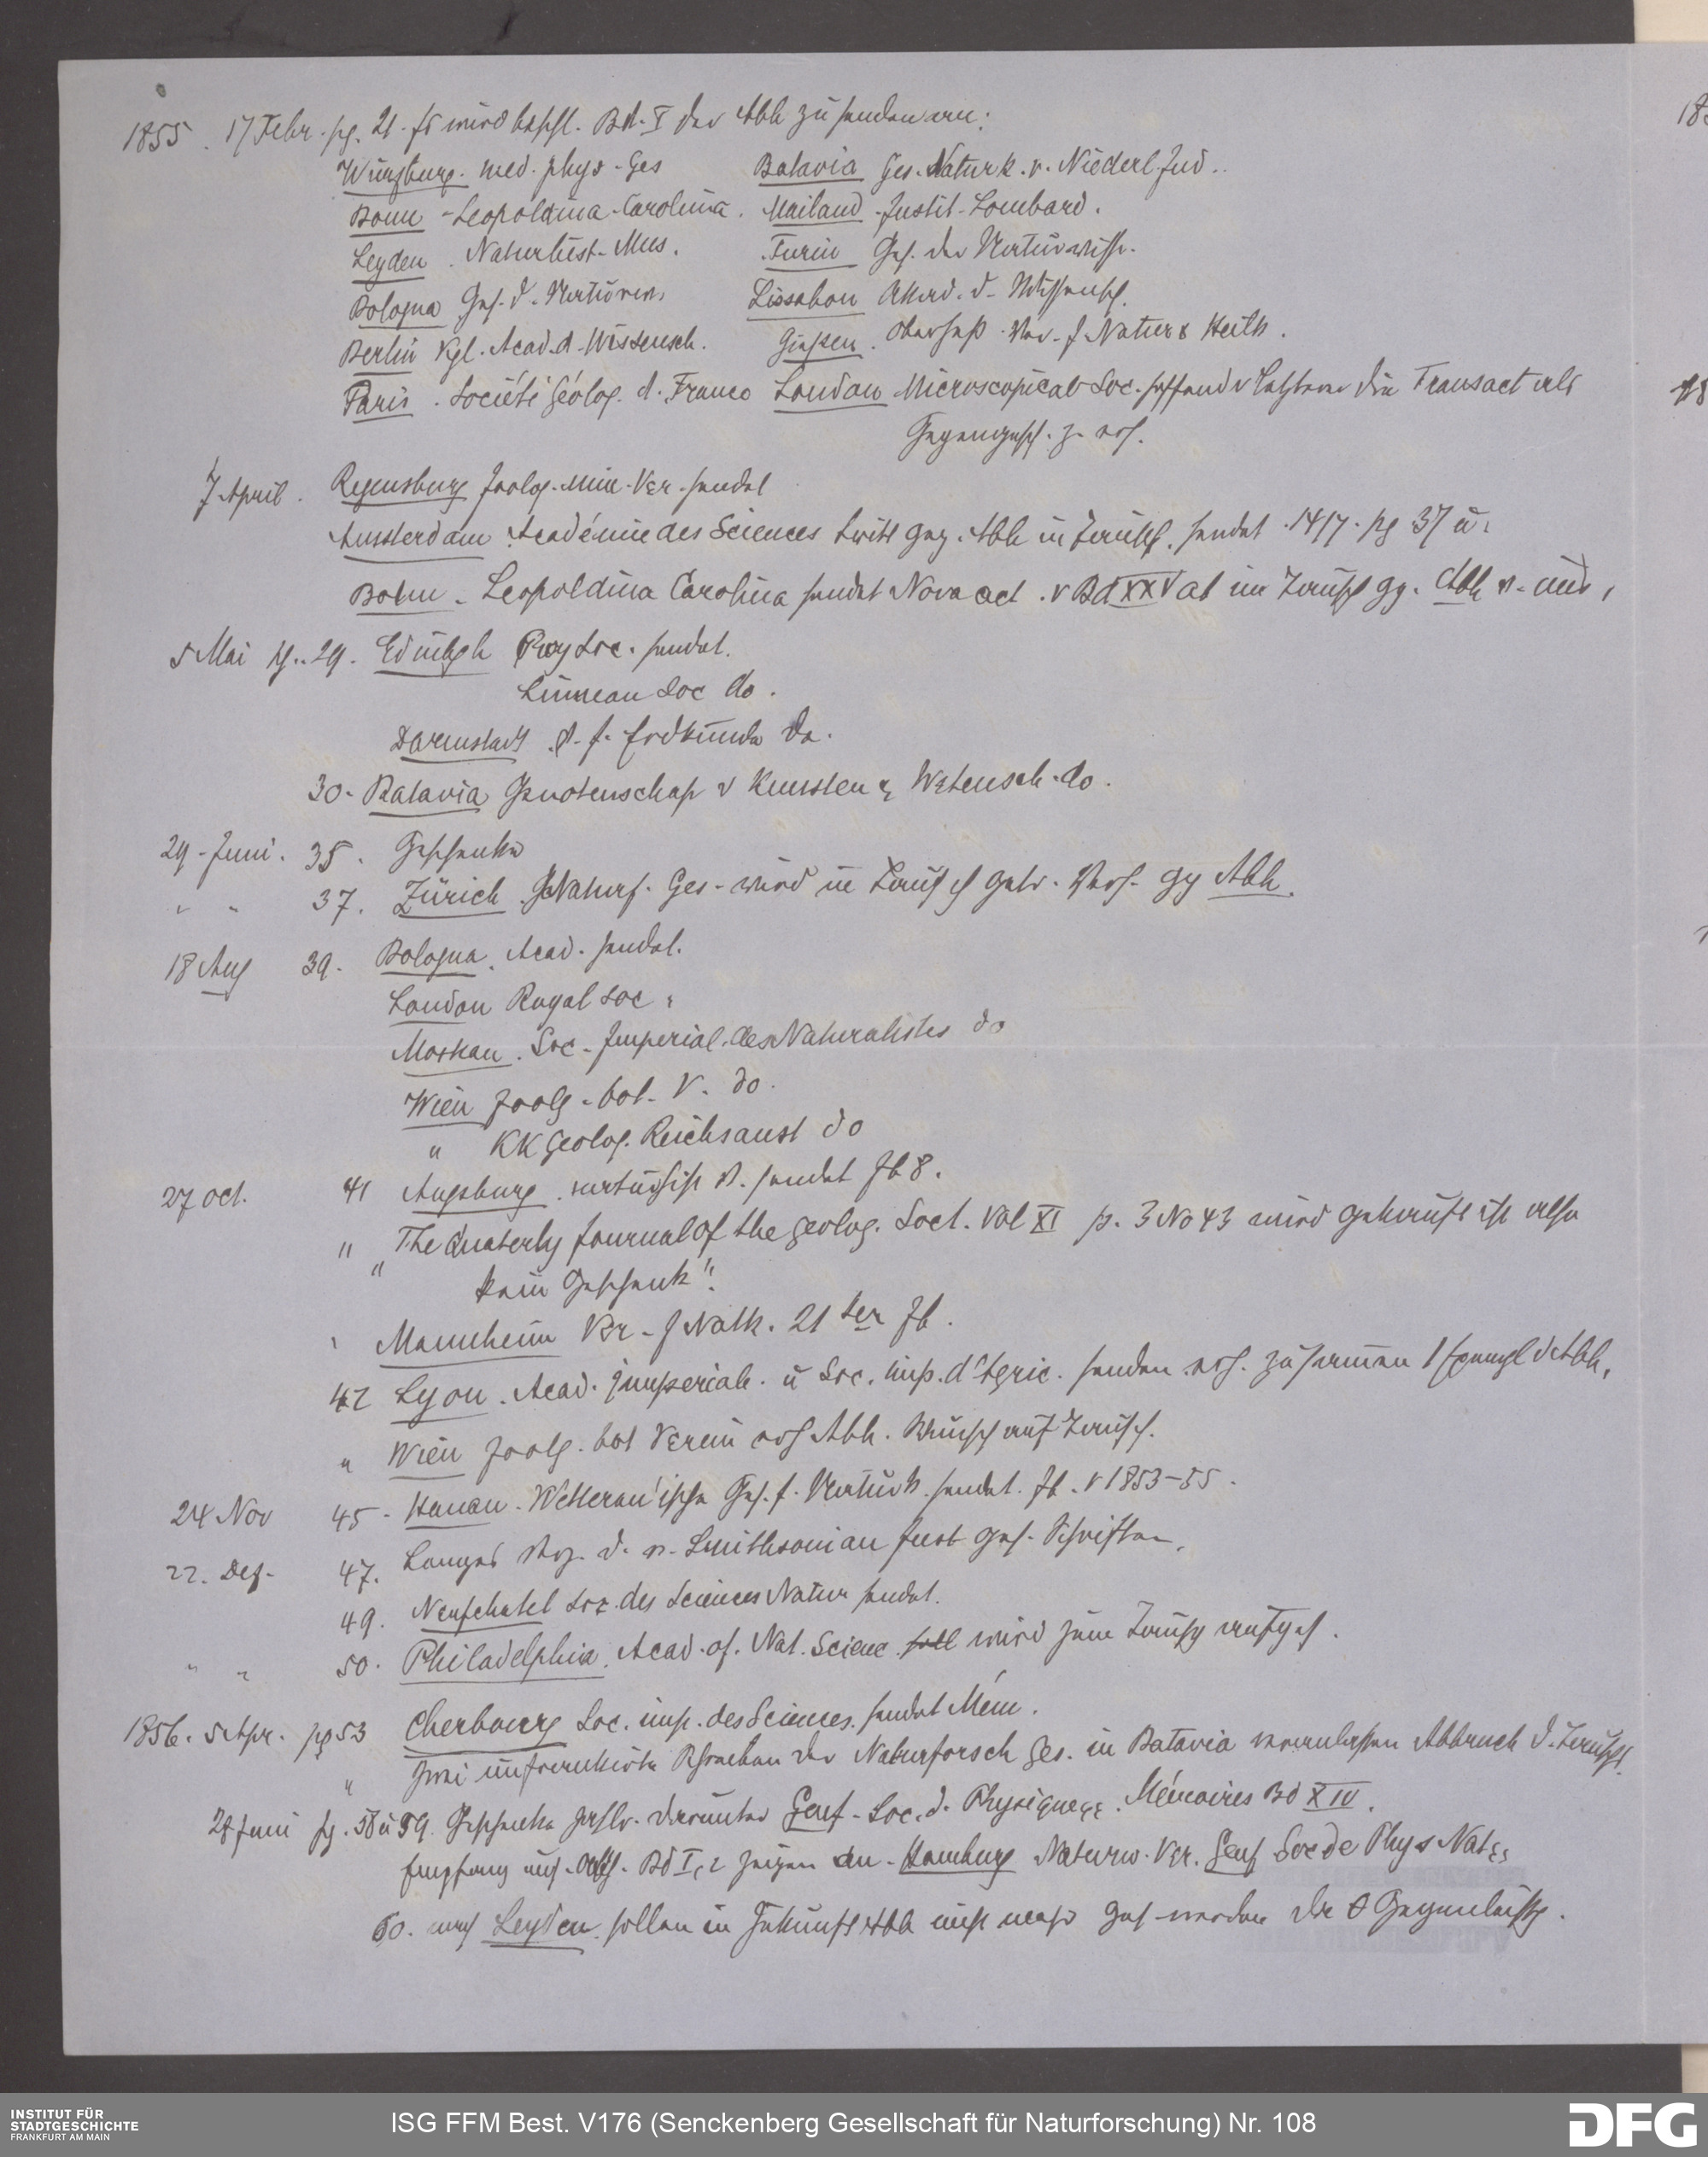 1855. 17 Febr. pg. 21. Es wird beschl. Bd. I der Abh zu senden an:
Würzburg. med. phys. Ges Batavia Ges. Naturk. v. Niederl. Ind..
Bonn - Leopoldina-Carolina. Mailand. Instit. Lombard.
Leyden. Naturhist. Mus. Turin Ges. der Naturwiss.
Bologna Ges. d. Lissabon Akad. d. Wissensch.
Berlin Kgl. Acad. d. Wissensch. Giessen. Oberhess. Ver. f Natur & Heilk.
Paris. Société Géolog. d. France London Microscopical Soc. die Transact als
Gegengesch. z. erh.
7 April. Regensburg Zoolog. Min. Ver. sendet
Amsterdam Académie des Sciences tritt geg. Abh in Tausch. sendet. 14/7. pg 37 u.
Bonn. Leopoldina Carolina sendet Nova act. v Bd XXV ab im Tausch gg. Abh
5 Mai pg. 29. Edinbgh Roy Soc. sendet.
Linnean Soc do.
Darmstadt V. f. Erdkunde do.
30. Batavia Genotenschap v Kunsten & Wetensch. do.
29. Juni. 35. Geschenke
" " 37. Zürich Naturf. Ges. wird in Tausch getr. gg Abh.
18 Aug 39. Bologna. Acad. sendet.
London Royal Soc "
Moskau. Soc. Imperial. des Naturalistes do
Wien Zoolg. bot. V. do.
" KK Geolog. Reichsanst do
27 Oct. 41 Augsburg. naturhist V. sendet Jb 8.
" "The Quaterly Journal of the geolog. Soct. Vol XI p. 3 No 43 wird gekauft ist also
kein Geschenk".
" Mannheim Ver. f Natk. 21 ter Jb.
42 Lyon. Acad. imperiale. u Soc. imp. d'Agric. senden. erh. zusammen 1 Exempl d Abh.
" Wien Zoolg. bot Verein erh Abh. Wunsch auf Tausch.
24 Nov 45. Hanau. Wetterau'ische Ges. f. Naturk. sendet. Jb. v 1853-55.
22. Dez. 47. Langes d. v. Smithsonian Inst ges. Schriften.
49. Neufchatel Soc. des Sciences Natur sendet.
" " 50. Philadelphia. Acad. of. Nat. Scienc. soll wird zum Tausch aufgef.
1856. 5 Apr. pg 53 Cherbourg Soc. imp. des Sciences. sendet Mém.
" Zwei unfrankirte Schreiben der Naturforsch Ges. in Batavia veranlassen Abbruch d. Tausches.
28 Juni pg. 58 u 59. Geschenke zahlr. darunter Genf. Soc. d. Physique &. Mémoires Bd XIV.
Empfang uns. Abh. Bd I, 2 zeigen an. Hamburg Naturw. Ver. Genf Soc de Phys Nat
60. nach Leyden. sollen in Zukunft Abh nicht mehr ges. werden da 0 Gegenleistg.
INSTITUT FÜR
STADTGESCHICHTE
FRANKFURT AM MAIN
ISG FFM Best. V176 (Senckenberg Gesellschaft für Naturforschung) Nr. 108
DFG